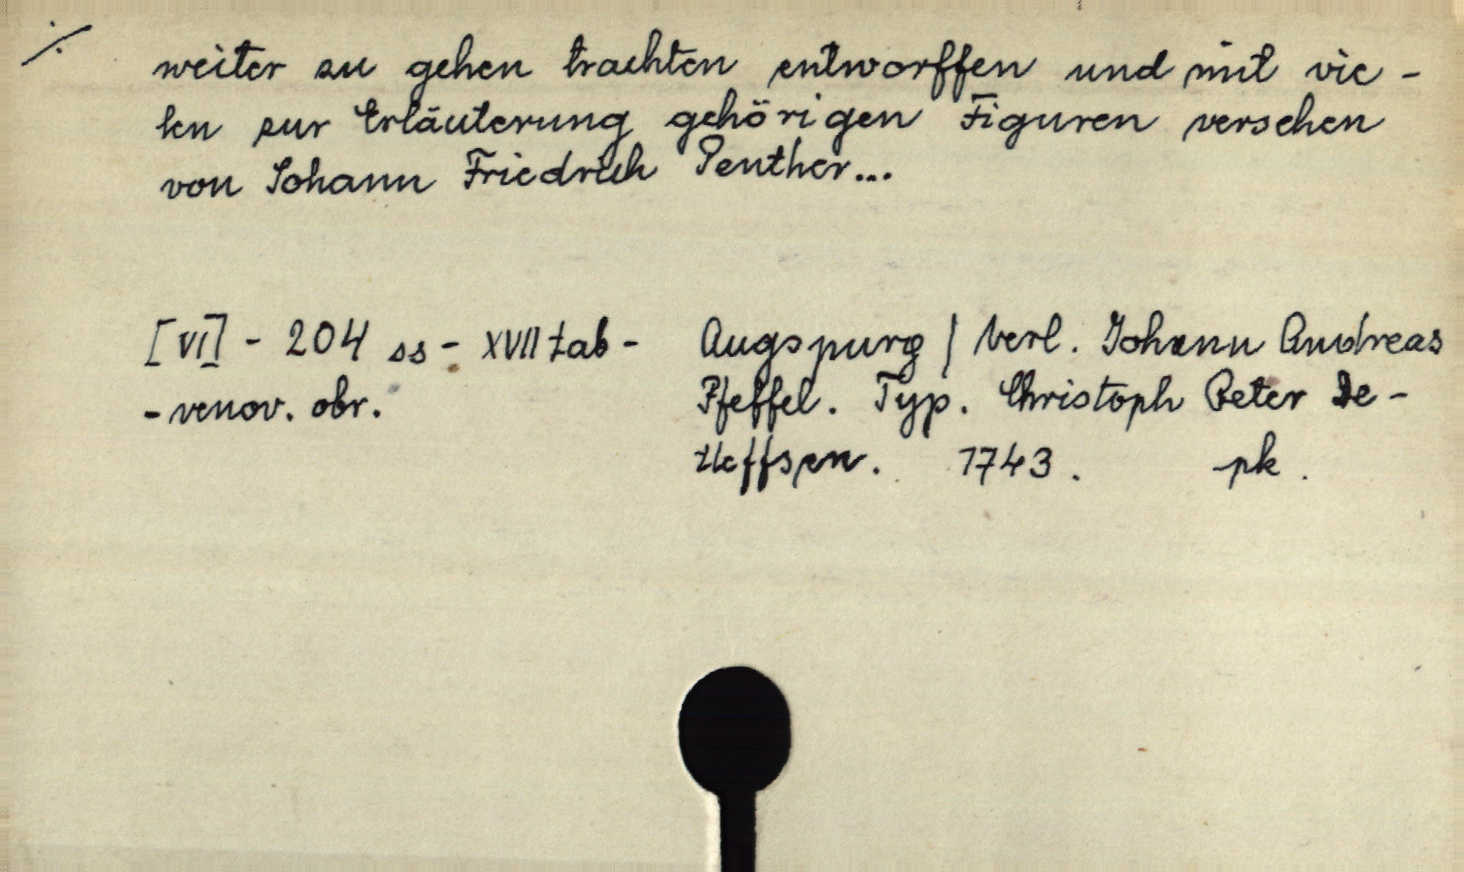 ./.
weiter zu gehen trachten entworffen und mit vie-
len zur Erläuterung gehörigen Figuren versehen
von Johann Friedrich Penther...
[VI] - 204 ss - XVII tab -
- venov. obr.
Augspurg / Verl. Johann Andreas
Pfeffel. Typ. Christoph Peter De-
tleffsen. 1743. pk.